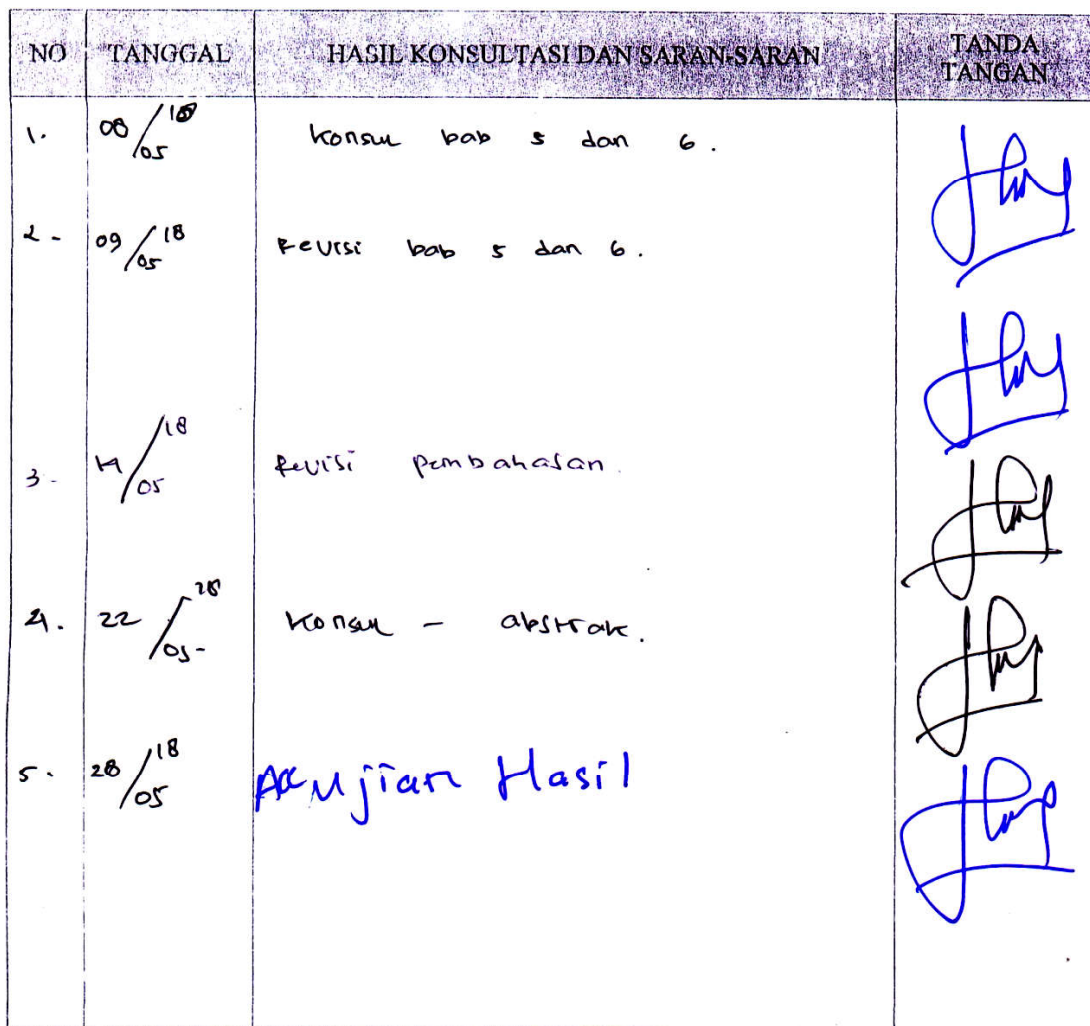 NO TANGGAL HASIL KONSULTASI DAN SARAN-SARAN TANDA TANGAN
1. 08/05 18 Konsul bab 5 dan 6.
2 - 09/05 18 Revisi bab 5 dan 6.
3 - 14/05 18 Revisi pembahasan.
4. 22/05- Konsul - abstrak.
5. 28/05 18 Acc Ujian Hasil